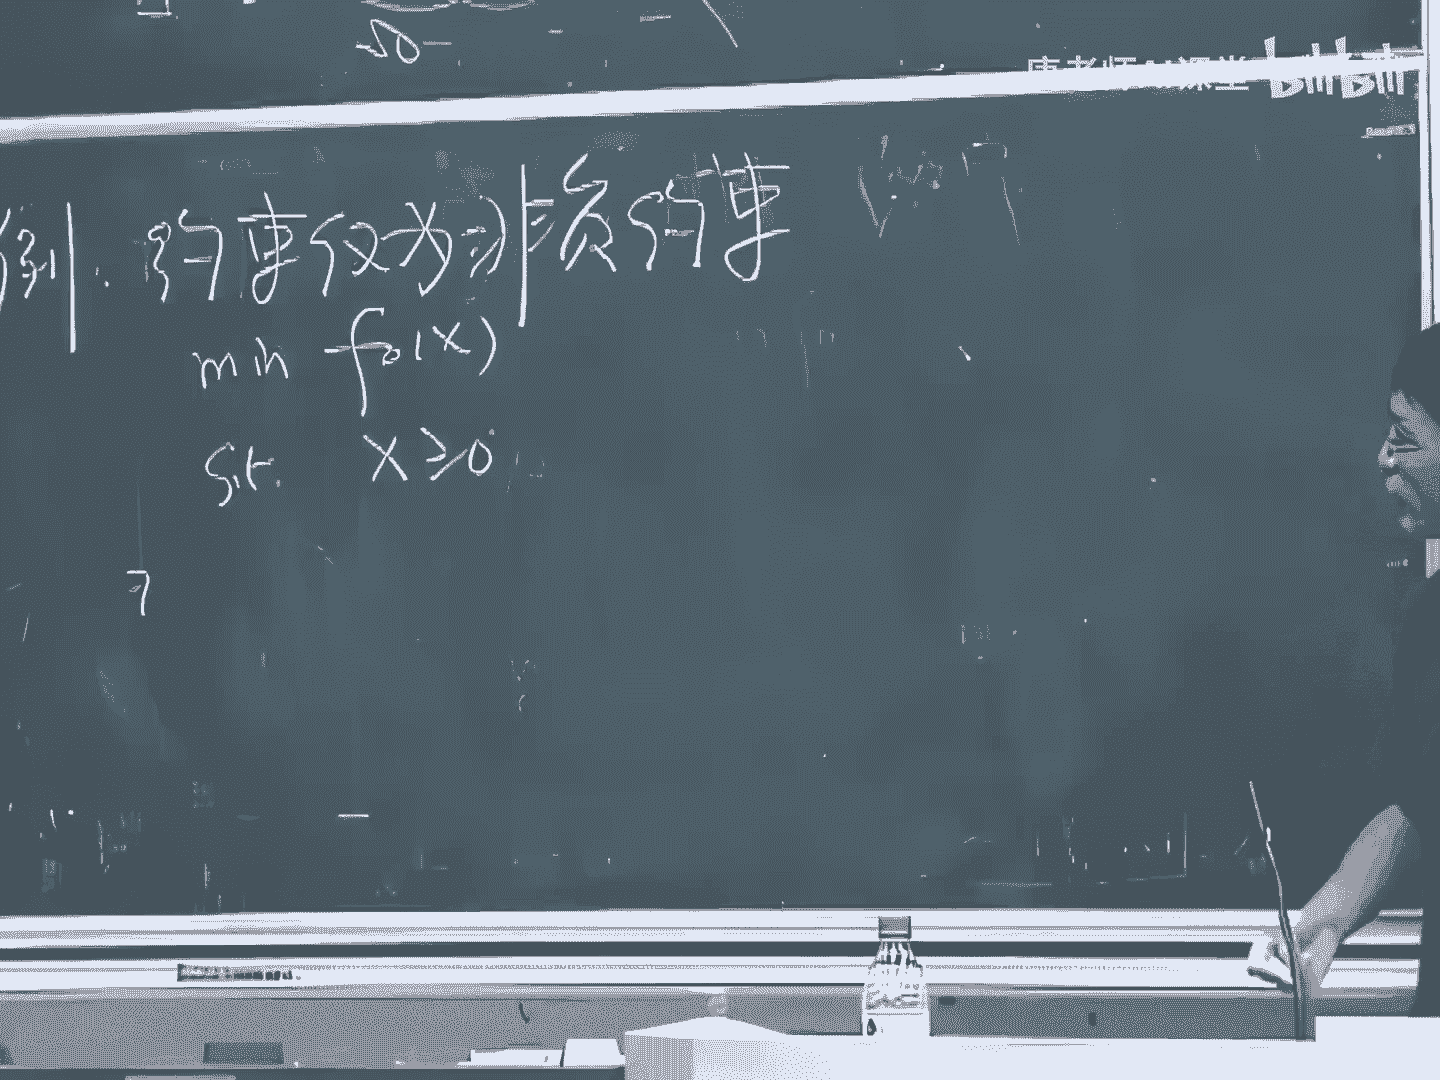 唐老师AI课堂 bilibili
例. 约束仅为非负约束
min f₀(x)
s.t. x ≥ 0